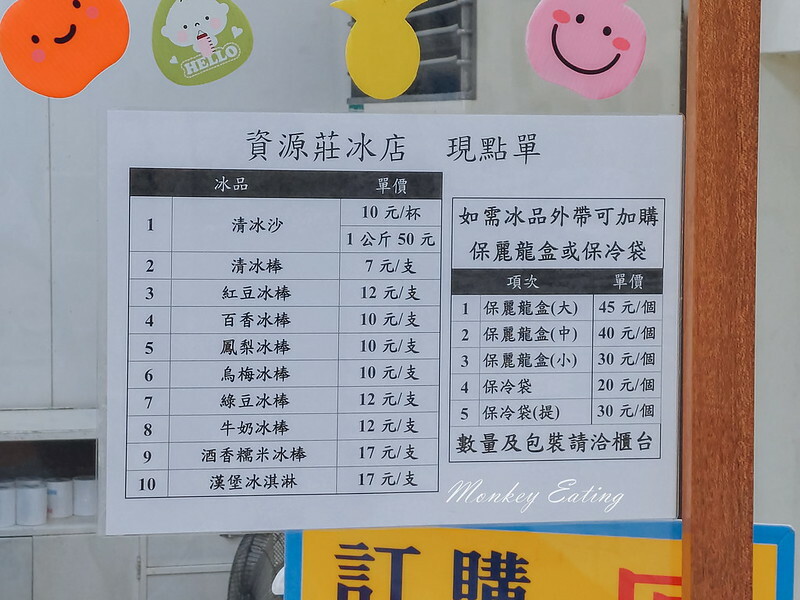 HELLO
資源莊冰店 現點單
冰品 單價
1 清冰沙 10 元/杯
1 公斤 50 元
2 清冰棒 7 元/支
3 紅豆冰棒 12 元/支
4 百香冰棒 10 元/支
5 鳳梨冰棒 10 元/支
6 烏梅冰棒 10 元/支
7 綠豆冰棒 12 元/支
8 牛奶冰棒 12 元/支
9 酒香糯米冰棒 17 元/支
10 漢堡冰淇淋 17 元/支
如需冰品外帶可加購
保麗龍盒或保冷袋
項次 單價
1 保麗龍盒(大) 45 元/個
2 保麗龍盒(中) 40 元/個
3 保麗龍盒(小) 30 元/個
4 保冷袋 20 元/個
5 保冷袋(提) 30 元/個
數量及包裝請洽櫃台
Monkey Eating
訂購